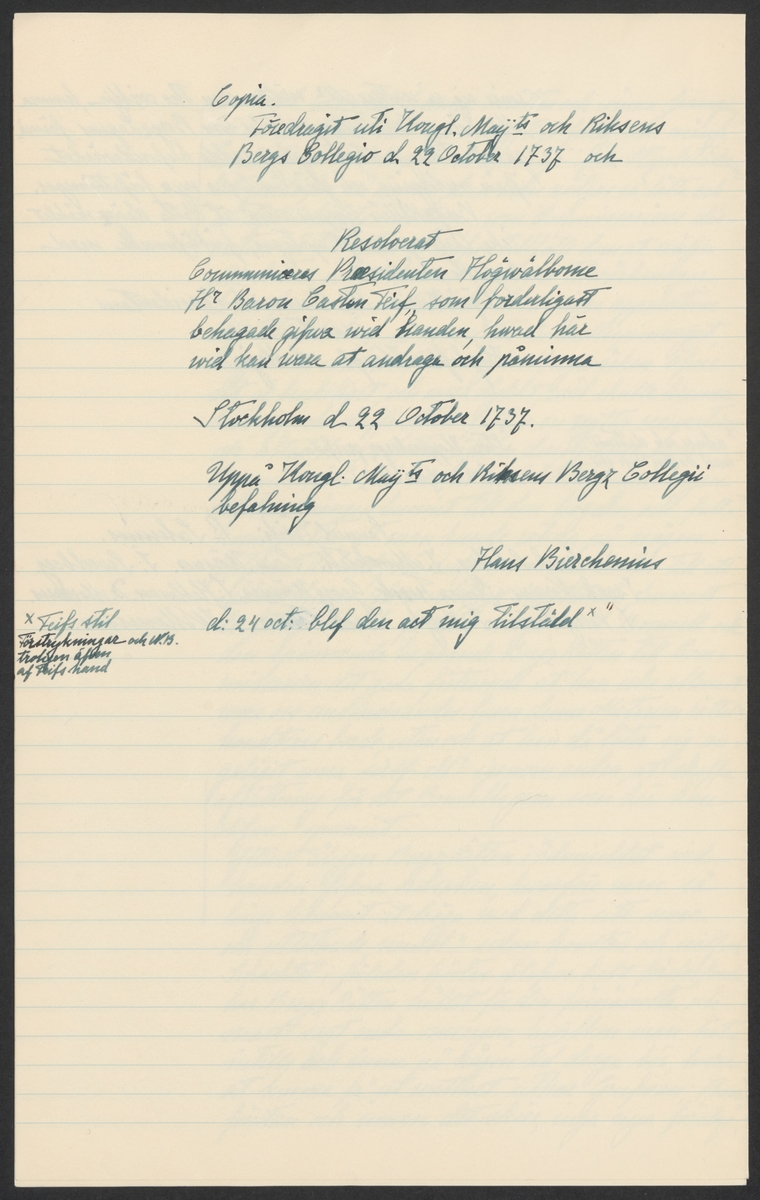 Copia.
Föredragit uti Kongl. Maÿts och Riksens
Bergs Collegio d 22 October 1737 och
Resolverat
Communiceres Præsidenten Högwälborne
Hr Baron Casten Feif, som forderligast
behagade gifwa wid handen, hwad här
wid kan wara at andraga och påminna
Stockholm d 22 October 1737.
Uppå Kongl. Maÿts och Riksens Bergz Collegii
befalning
Hans Bierchenius
d: 24 oct: blef den act mig tilstäld x "
x Feifs stil
Förstrykningar och N.B.
troligen äfven
af Feifs hand